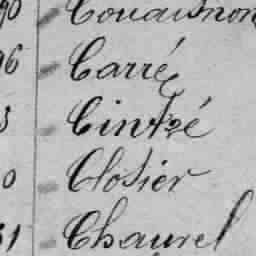 90 Couaisnon
96 Carré
3 Cintré
0 Closier
31 Chaurel